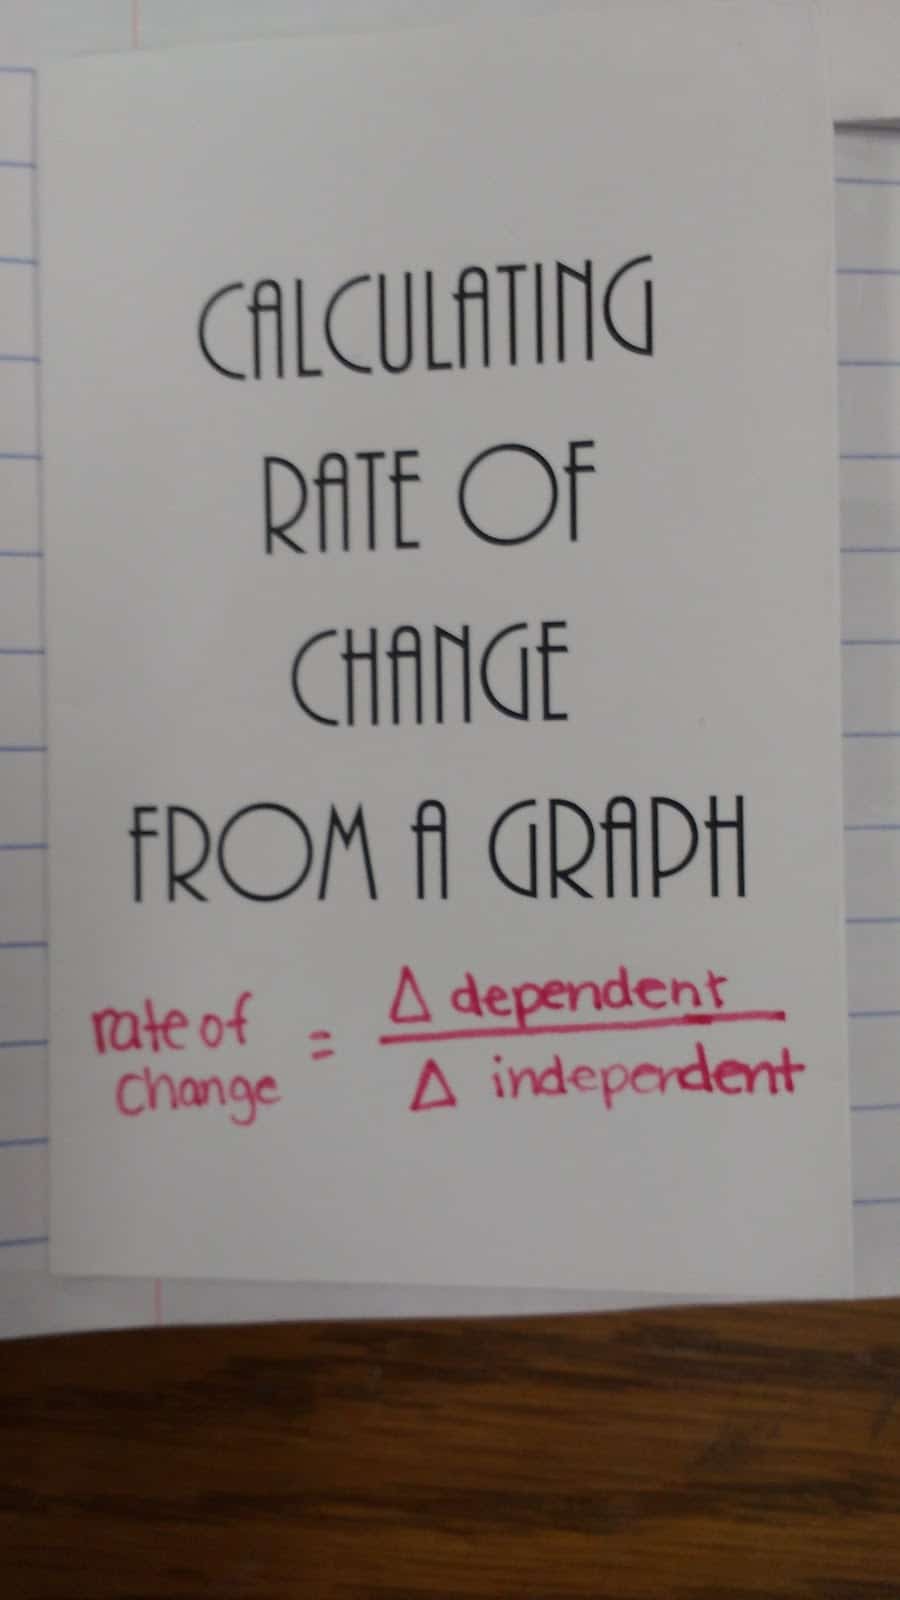 CALCULATING
RATE OF
CHANGE
FROM A GRAPH
rate of change = Δ dependent / Δ independent